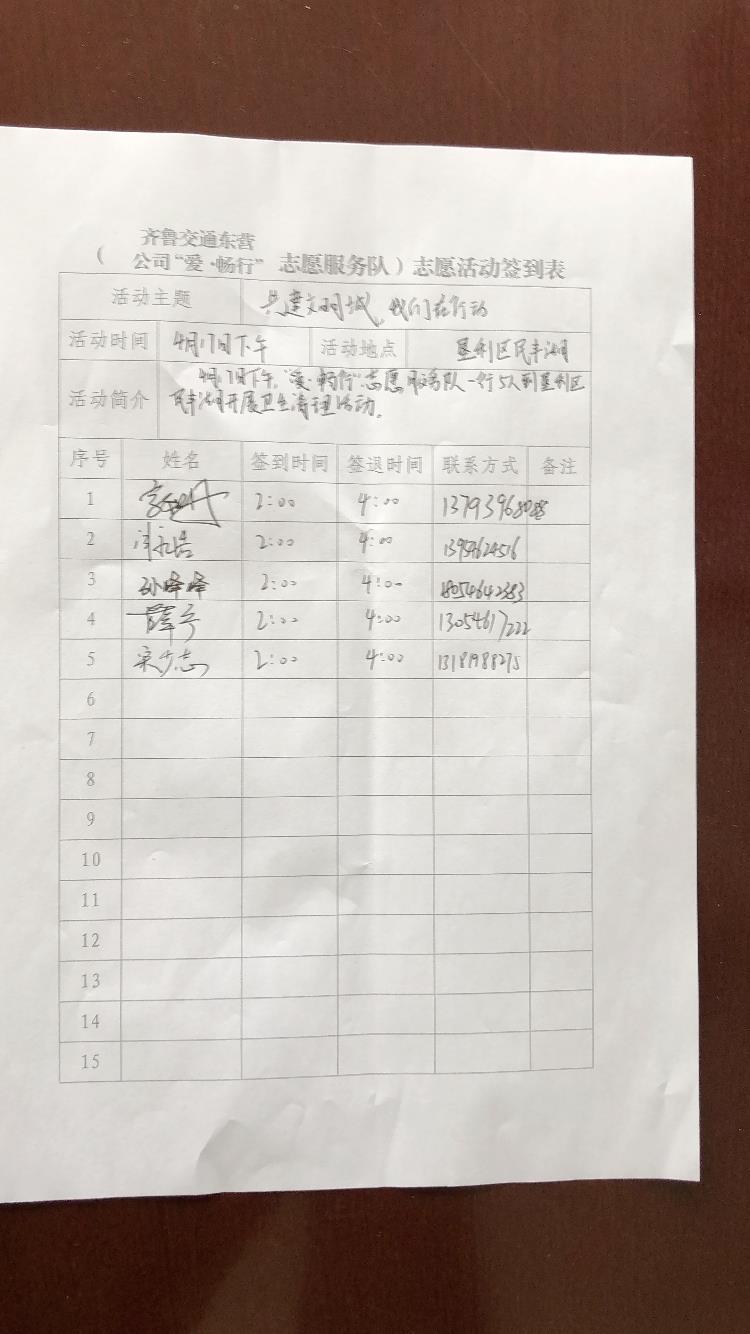 齐鲁交通东营
( 公司“爱·畅行” 志愿服务队）志愿活动签到表
活动主题 共建文明城，我们在行动
活动时间 4月17日下午 活动地点 垦利区民丰湖
4月17日下午，“爱·畅行”志愿服务队一行5人到垦利区
活动简介 民丰湖开展卫生清理活动。
序号 姓名 签到时间 签退时间 联系方式 备注
1 2:00 4:00
2 2:00 4:00 13954624516
3 孙峰峰 2:00 4:0- 18054642383
4 薛宁 2:00 4:00 13054617222
5 宋少志 2:00 4:00 13181988275
6
7
8
9
10
11
12
13
14
15